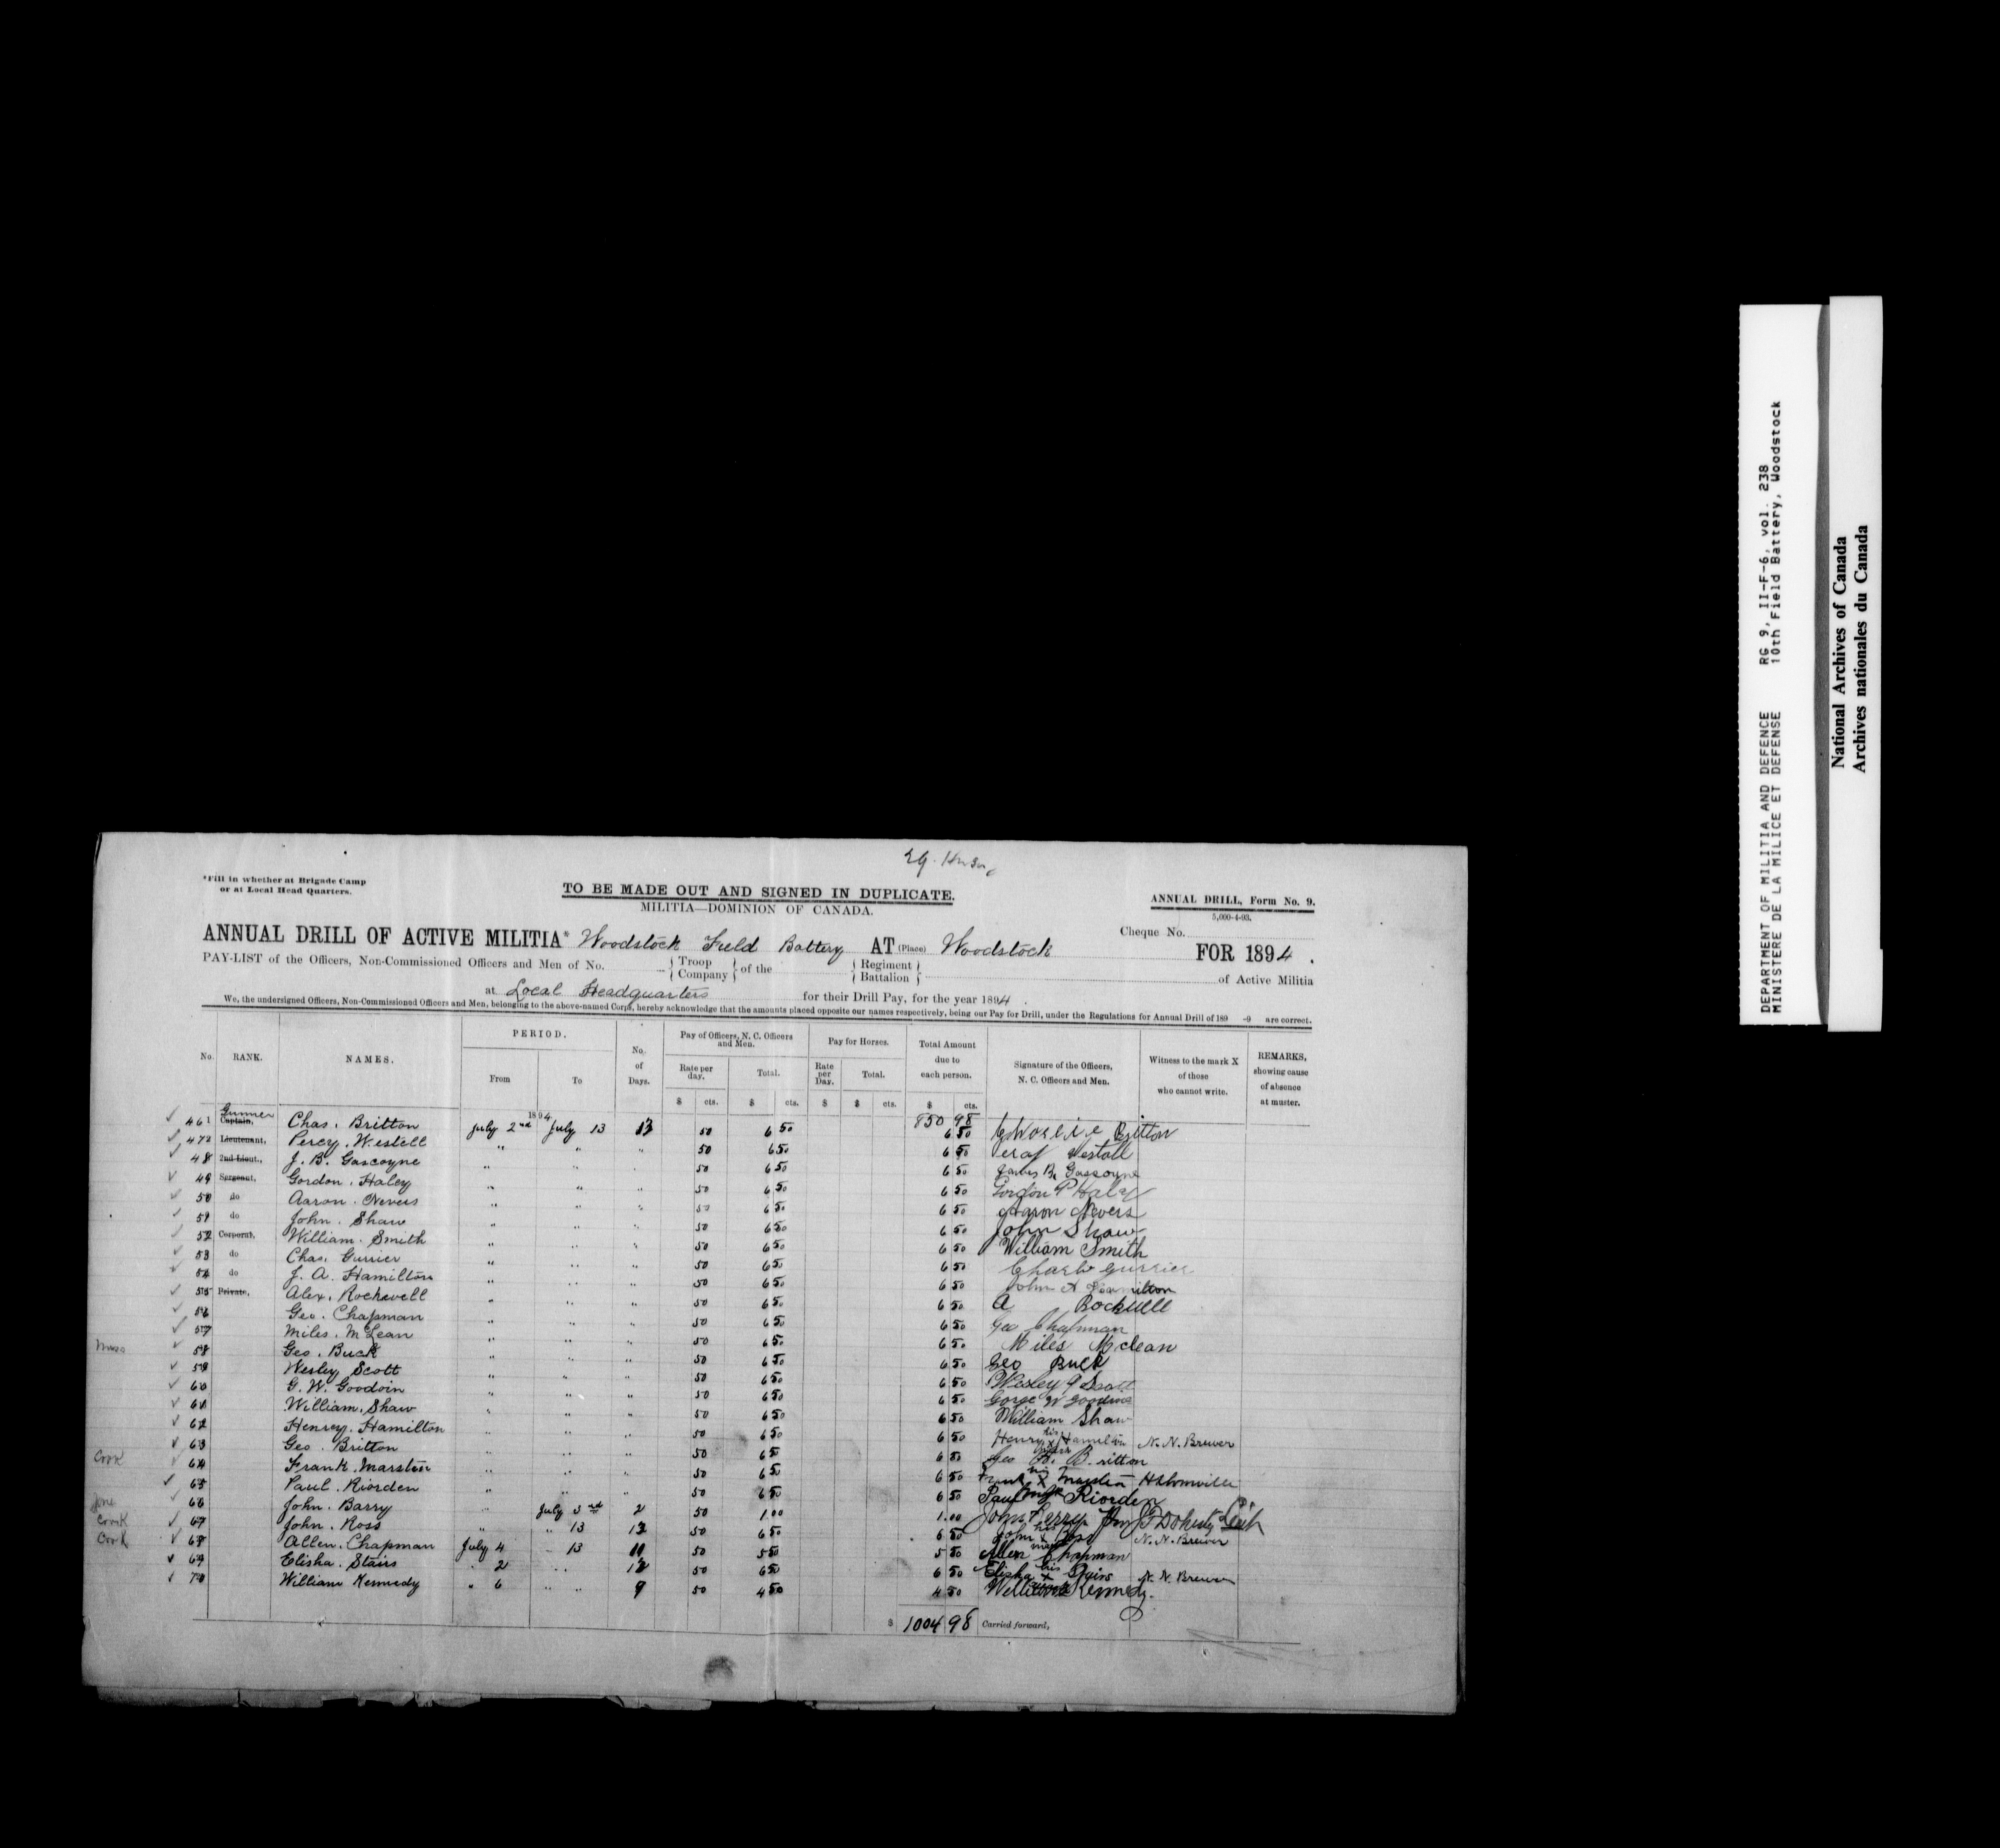 *Fill in whether at Brigade Camp
or at Local Head Quarters.
TO BE MADE OUT AND SIGNED IN DUPLICATE.
MILITIA—DOMINION OF CANADA.
ANNUAL DRILL, Form No. 9.
5,000-4-93.
Cheque No.
ANNUAL DRILL OF ACTIVE MILITIA* Woodstock Field Battery AT (Place) Woodstock FOR 1894.
PAY-LIST of the Officers, Non-Commissioned Officers and Men of No. { Troop Company } of the { Regiment Battalion } of Active Militia
at Local Headquarters for their Drill Pay, for the year 1894.
We, the undersigned Officers, Non-Commissioned Officers and Men, belonging to the above-named Corps, hereby acknowledge that the amounts placed opposite our names respectively, being our Pay for Drill, under the Regulations for Annual Drill of 189 -9 are correct.
No. RANK. NAMES. PERIOD. From To No. of Days. Pay of Officers, N. C. Officers and Men. Rate per day. Total. Pay for Horses. Rate per Day. Total. Total Amount due to each person. Signature of the Officers, N. C. Officers and Men. Witness to the mark X of those who cannot write. REMARKS, showing cause of absence at muster.
$ cts. $ cts. $ $ cts. $ cts.
1894 850 98
46 1 Gunner Captain, Chas. Britton July 2nd July 13 13 50 6 50 6 50 Charlie Britton
47 2 Lieutenant, Percy Westell " " " 50 6 50 6 50 Westall
48 2nd Lieut., J. B. Gascoyne " " " 50 6 50 6 50 James B. Gascoyne
49 Sergeant, Gordon Haley " " " 50 6 50 6 50 Gordon P Haley
50 do Aaron Nevers " " " 50 6 50 6 50 Aaron Nevers
51 do John Shaw " " " 50 6 50 6 50 John Shaw
52 Corporal, William Smith " " " 50 6 50 6 50 William Smith
53 do Chas. Gurrier " " " 50 6 50 6 50 Charls Gurrier
54 do J. A. Hamilton " " " 50 6 50 6 50 John A Hamilton
55 Private, Alex. Rockwell " " " 50 6 50 6 50 A Rockwell
56 Geo. Chapman " " " 50 6 50 6 50 Geo Chapman
57 Miles McLean " " " 50 6 50 6 50 Miles Mclean
58 Geo. Buck " " " 50 6 50 6 50 Geo Buck
59 Wesley Scott " " " 50 6 50 6 50 Wesley Scott
60 G. W. Goodwin " " " 50 6 50 6 50 Gorge W Goodwin
61 William Shaw " " " 50 6 50 6 50 William Shaw
62 Henrey Hamilton " " " 50 6 50 6 50 Henry his X mark Hamilton N. N. Brewer
63 Geo. Britton " " " 50 6 50 6 50 Geo B. Britton
Cook 64 Frank Marsten " " " 50 6 50 6 50 Frank his X mark Marsten
65 Paul Riorden " " " 50 6 50 6 50 Paul Riorden
66 John Barry " July 3rd 2 50 1.00 1.00 John Perry
Cook 67 John Ross " " 13 12 50 6 50 6 50 John his X mark Ross N. N. Brewer
Cook 68 Allen Chapman July 4 " 13 10 50 5 50 5 50 Allen Chapman
69 Elisha Stairs " 2 " " 12 50 6 50 6 50 Elisha his X mark Stairs N. N. Brewer
70 William Kennedy " 6 " " 9 50 4 50 4 50 William Kennedy.
$ 1004 98 Carried forward,
DEPARTMENT OF MILITIA AND DEFENCE RG 9, II-F-6, vol. 238
MINISTERE DE LA MILICE ET DEFENSE 10th Field Battery, Woodstock
National Archives of Canada
Archives nationales du Canada